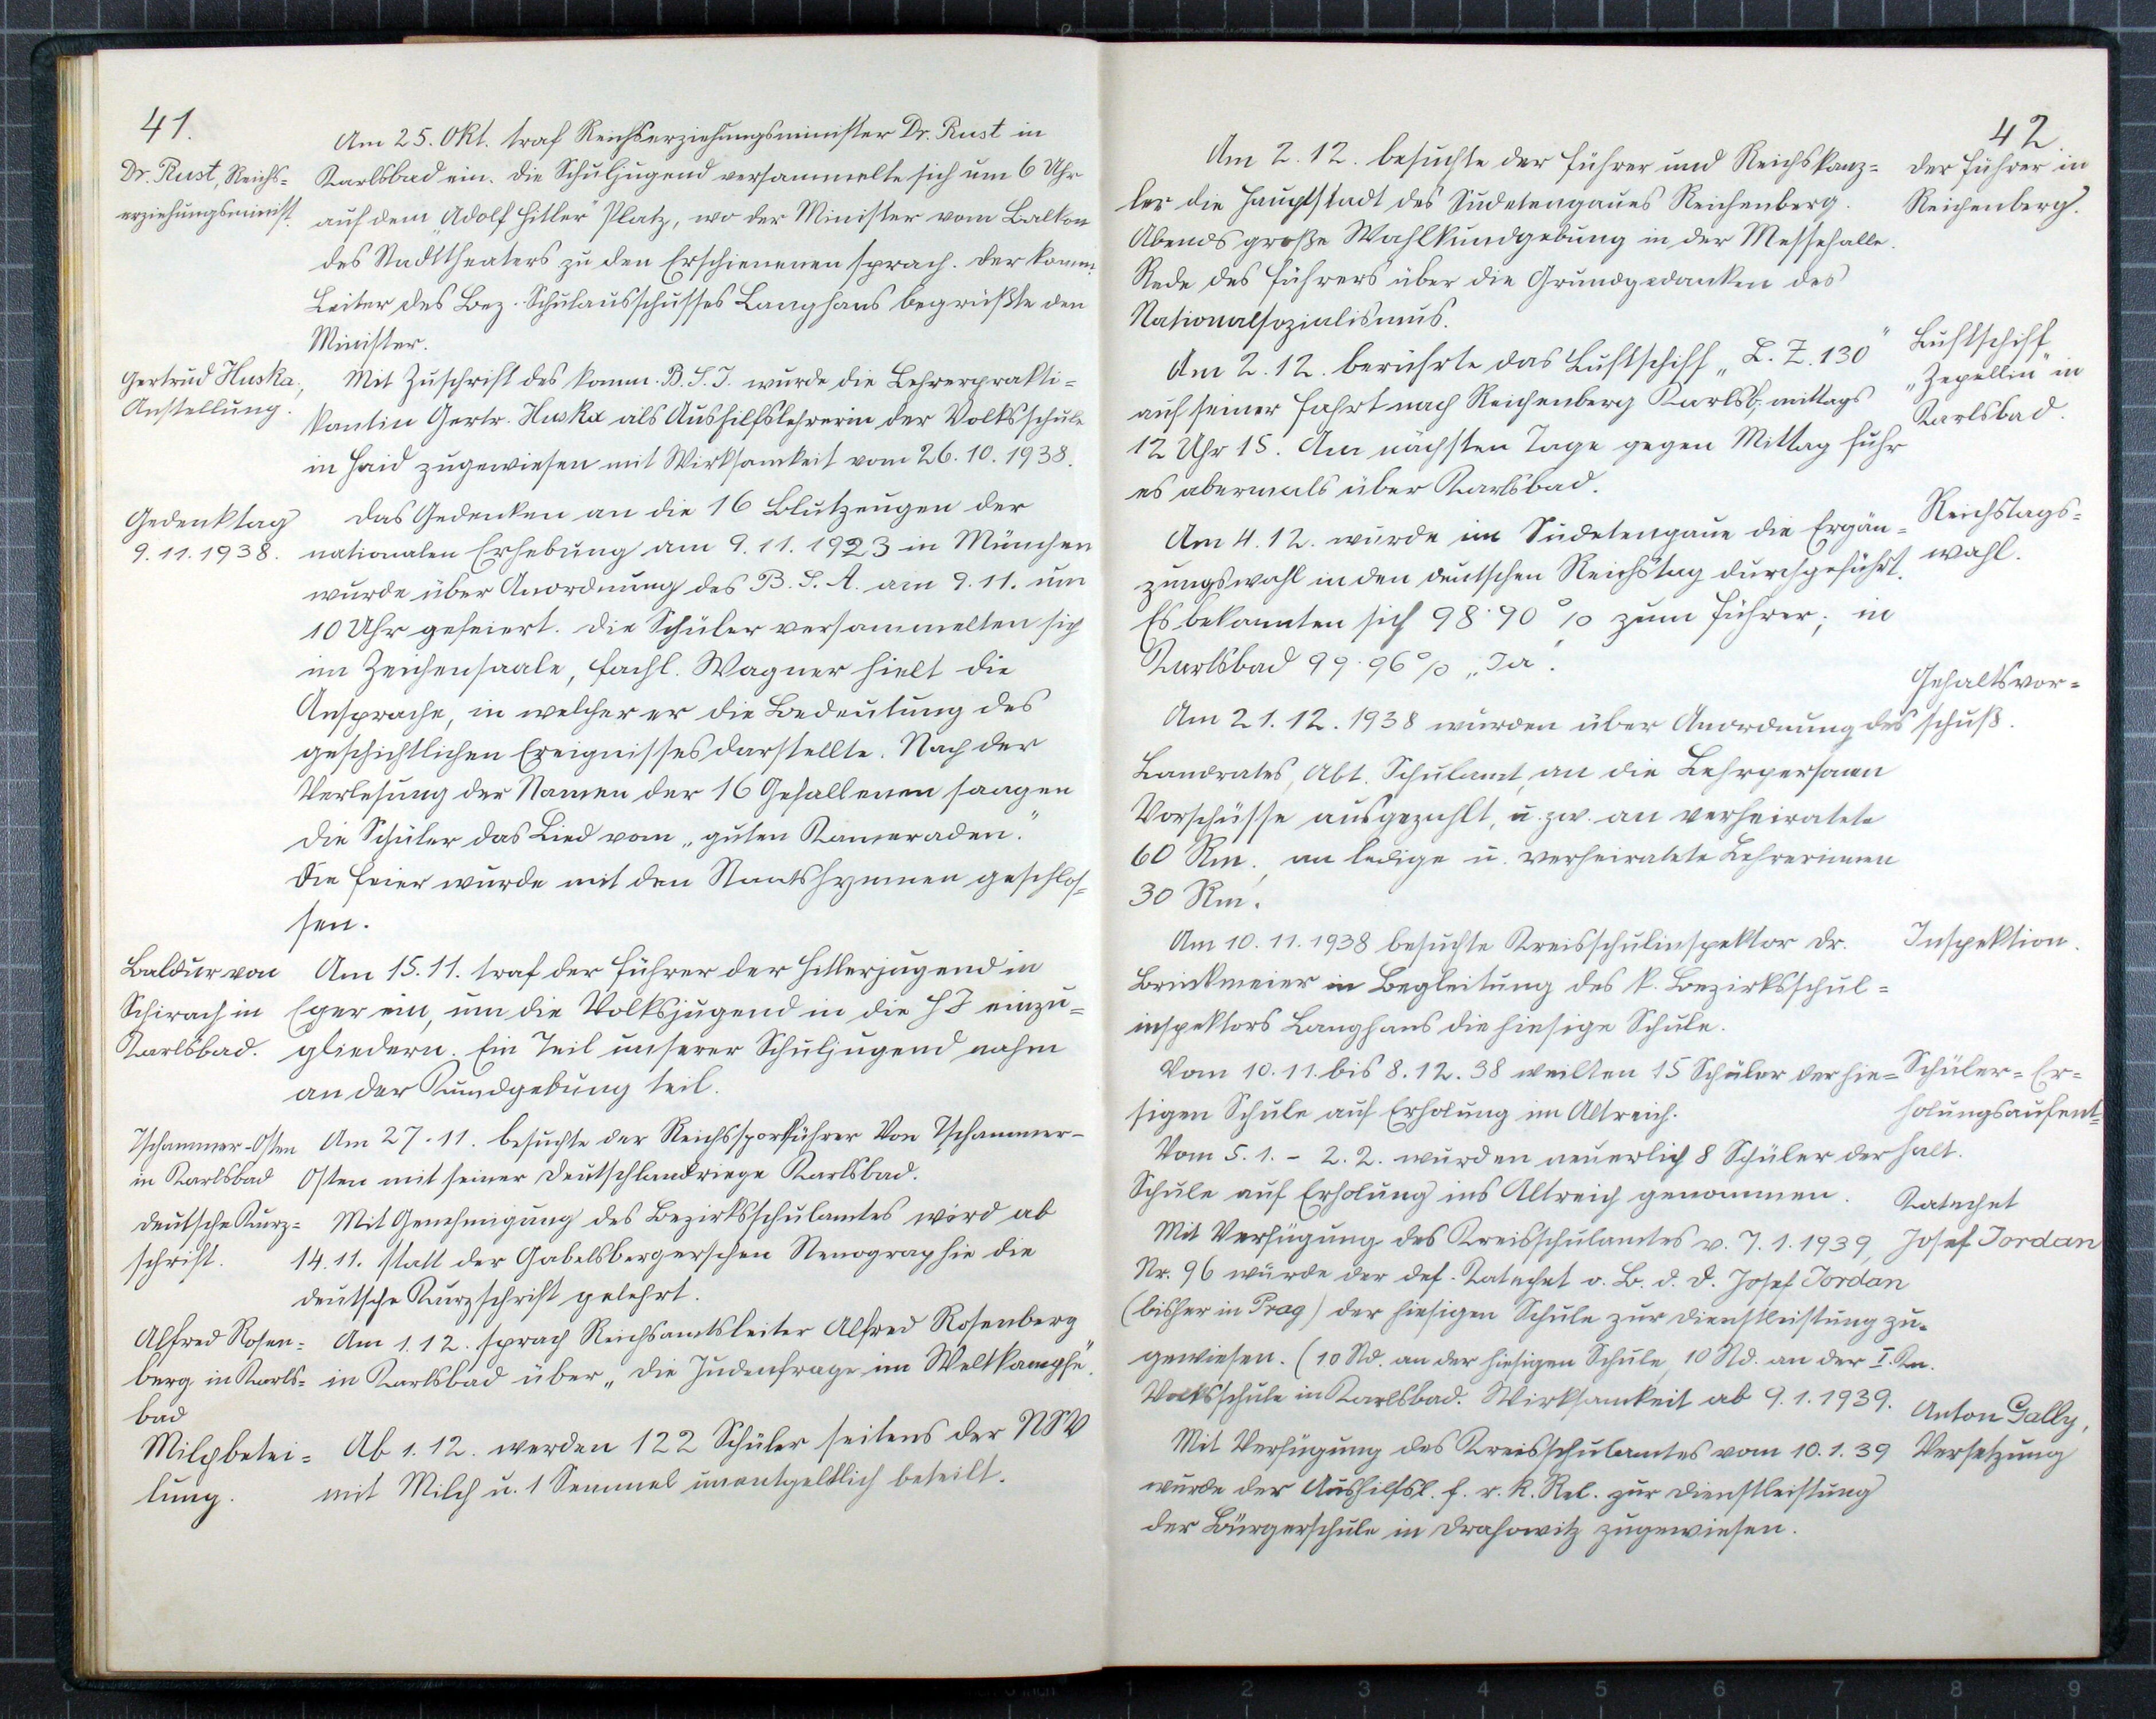 41.
Dr. Rust, Reichs=
erziehungsminist.
Am 25. Okt. traf Reichserziehungsminister Dr. Rust in
Karlsbad ein. Die Schuljugend versammelte sich um 6 Uhr
auf dem „Adolf Hitler" Platz, wo der Minister vom Balkon
des Stadttheaters zu den Erschienenen sprach. Der komm.
Leiter des Bez. Schulausschusses Langhans begrüßte den
Minister.
Gertrud Huska,
Anstellung.
Mit Zuschrift des komm. B. S. I. wurde die Lehrerprakti=
kantin Gertr. Huska als Aushilfslehrerin der Volksschule
in Haid zugewiesen mit Wirksamkeit vom 26. 10. 1938.
Gedenktag
9. 11. 1938.
Das Gedenken an die 16 Blutzeugen der
nationalen Erhebung am 9. 11. 1923 in München
wurde über Anordnung des B. S. A. am 9. 11. um
10 Uhr gefeiert. Die Schüler versammelten sich
im Zeichensaale, Fachl. Wagner hielt die
Ansprache, in welcher er die Bedeutung des
geschichtlichen Ereignisses darstellte. Nach der
Verlesung der Namen der 16 Gefallenen sangen
die Schüler das Lied vom „guten Kameraden."
Die Feier wurde mit den Staatshymnen geschlos=
sen.
Baldur von
Schirach in
Karlsbad.
Am 15. 11. traf der Führer der Hitlerjugend in
Eger ein, um die Volksjugend in die HJ einzu=
gliedern. Ein Teil unserer Schuljugend nahm
an der Kundgebung teil.
Tschammer-Osten
in Karlsbad
Am 27. 11. besuchte der Reichssportführer Von Tschammer-
Osten mit seiner Deutschlandriege Karlsbad.
Deutsche Kurz=
schrift.
Mit Genehmigung des Bezirksschulamtes wird ab
14. 11. statt der Gabelsbergerschen Stenographie die
deutsche Kurzschrift gelehrt.
Alfred Rosen=
berg in Karls=
bad
Am 1. 12. sprach Reichsamtsleiter Alfred Rosenberg
in Karlsbad über „Die Judenfrage im Weltkampfe".
Milchbetei=
lung.
Ab 1. 12. werden 122 Schüler seitens der NSV
mit Milch u. 1 Semmel unentgeltlich beteilt.
42.
Am 2. 12. besuchte der Führer und Reichskanz=
ler die Hauptstadt des Sudetengaues Reichenberg.
Abends große Wahlkundgebung in der Messehalle.
Rede des Führers über die Grundgedanken des
Nationalsozialismus.
Der Führer in
Reichenberg.
Am 2. 12. berührte das Luftschiff „L. Z. 130"
auf seiner Fahrt nach Reichenberg Karlsb. mittags
12 Uhr 15. Am nächsten Tage gegen Mittag fuhr
es abermals über Karlsbad.
Luftschiff
„Zepellin" in
Karlsbad.
Am 4. 12. wurde im Sudetengaue die Ergän=
zungswahl in den deutschen Reichstag durchgeführt.
Es bekannten sich 98·90 % zum Führer; in
Karlsbad 99·96 % „Ja".
Reichstags=
wahl.
Am 21. 12. 1938 wurden über Anordnung des
Landrates, Abt. Schulamt, an die Lehrpersonen
Vorschüsse ausgezahlt, u. zw. an verheiratete
60 Rm., an ledige u. verheiratete Lehrerinnen
30 Rm.
Gehaltsvor=
schuß.
Am 10. 11. 1938 besuchte Kreisschulinspektor Dr.
Brinkmeier in Begleitung des k. Bezirksschul=
inspektors Langhans die hiesige Schule.
Inspektion.
Vom 10. 11. bis 8. 12. 38 weilten 15 Schüler der hie=
sigen Schule auf Erholung im Altreich.
Vom 5. 1. - 2. 2. wurden neuerlich 8 Schüler der
Schule auf Erholung ins Altreich genommen.
Schüler=Er=
holungsaufent=
halt.
Mit Verfügung des Kreisschulamtes v. 7. 1. 1939,
Nr. 96 wurde der def. Katechet v. B. d. D. Josef Jordan
(bisher in Prag) der hiesigen Schule zur Dienstleistung zu=
gewiesen. (10 Std. an der hiesigen Schule, 10 Std. an der I. Kn.
Volksschule in Karlsbad. Wirksamkeit ab 9. 1. 1939.
Katechet
Josef Jordan
Mit Verfügung des Kreisschulamtes vom 10. 1. 39
wurde der Aushilfsl. f. r. k. Rel. zur Dienstleistung
der Bürgerschule in Drahowitz zugewiesen.
Anton Gally,
Versetzung
1 2 3 4 5 6 7 8 9